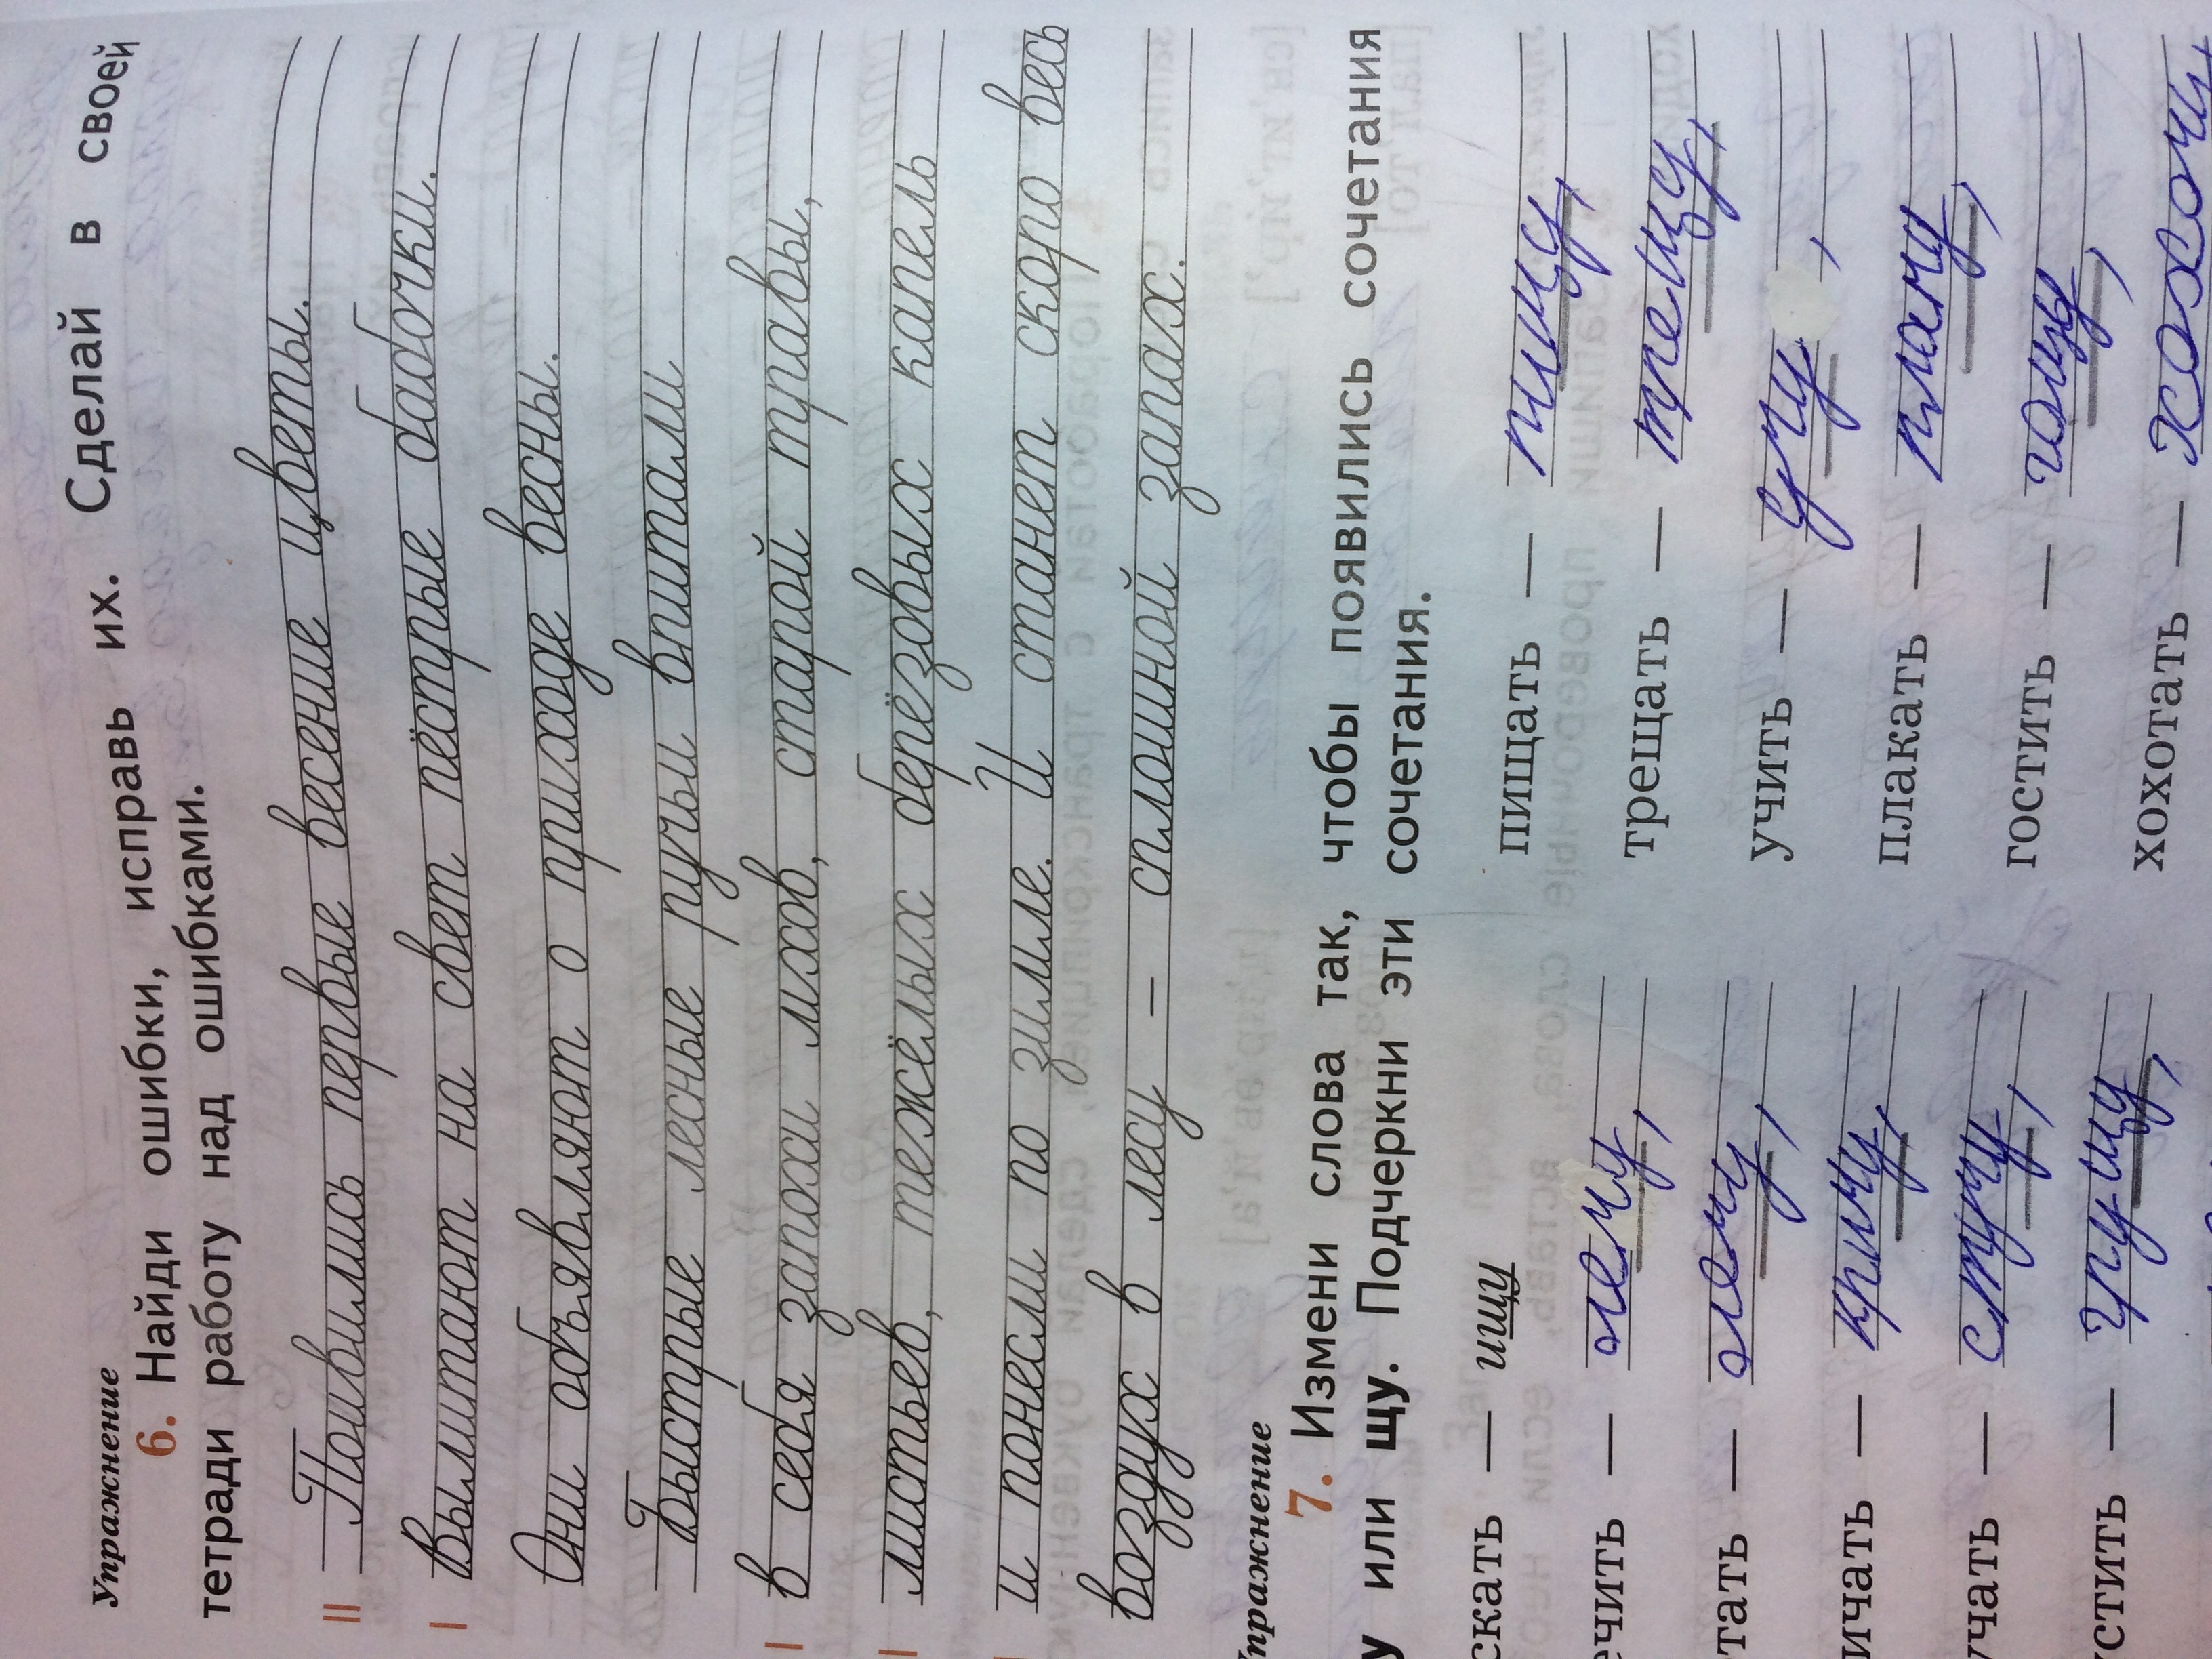 Упражнение
6. Найди ошибки, исправь их. Сделай в своей
тетради работу над ошибками.
|| Поивились первые весение цветы.
| Вылитают на свет пёстрые бабочки.
Они обьявляют о приходе весны.
Быстрые лесные ручьи впитали
| в себя запохи мхов, старой травы,
| листьев, тежёлых берёзовых капель
| и понесли по зимле. И станет скоро весь
воздух в лесу – сплошной запах.
Упражнение
7. Измени слова так, чтобы появились сочетания
у или щу. Подчеркни эти сочетания.
скать — ищу пищать — пищу,
ечить — лечу, трещать — трещу,
тать — лечу, учить — учу,
ичать — кричу, плакать — плачу,
учать — стучу, гостить — гощу,
стить — грущу, хохотать — хохочу